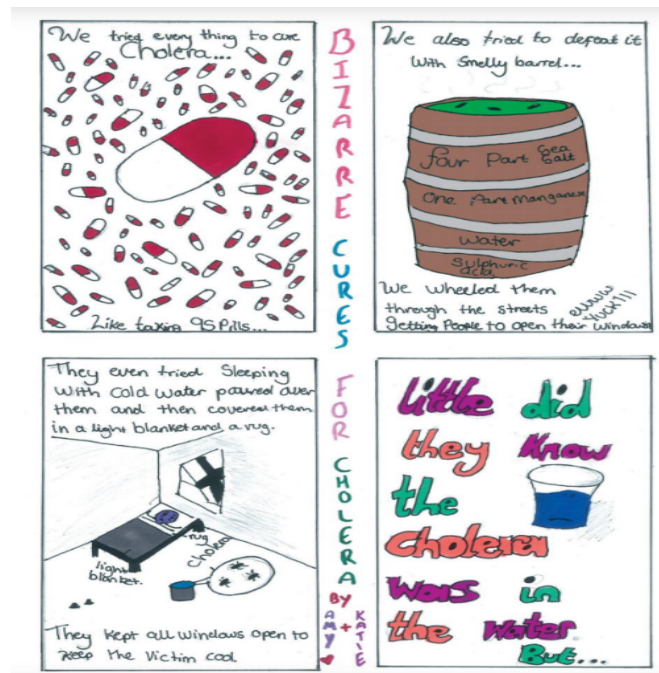 We tried every thing to cure
Cholera...
Like taking 95 Pills...
BIZARRE CURES FOR CHOLERA
BY
AMY + KATIE
We also tried to defeat it
with Smelly barrel...
four Part Sea
Salt
One Part manganese
Water
Sulphuric
acid
We wheeled them
through the streets
getting People to open their windows
ewwww
YUCK!!!
They even tried Sleeping
with cold water poured over
them and then covered them
in a light blanket and a rug.
rug
cholera
light
blanket.
They kept all windows open to
keep the victim cool.
little did
they Know
the
Cholera
was in
the water.
But...